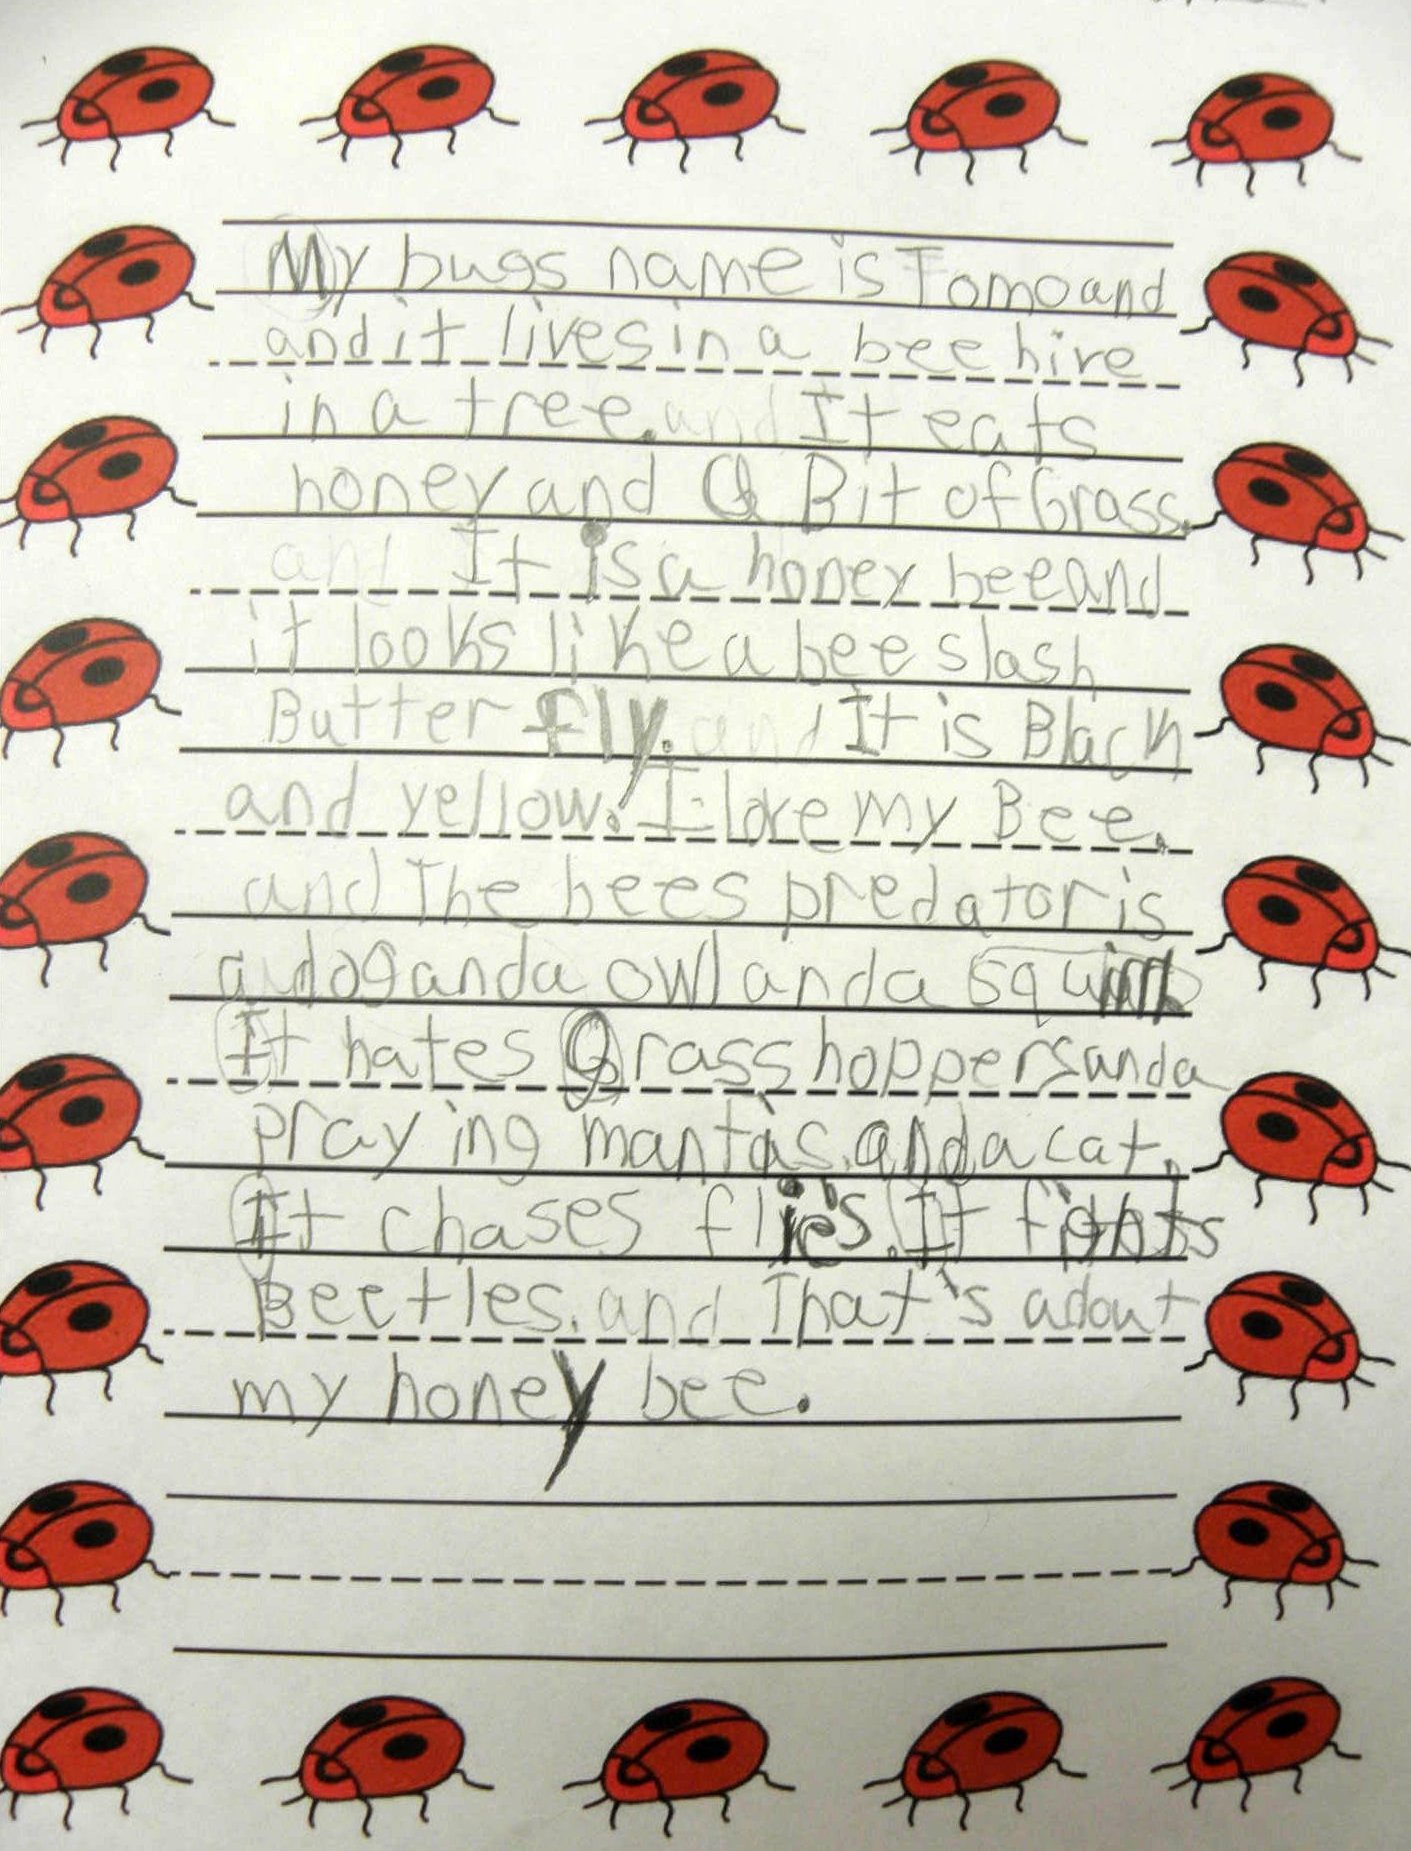 My bugs name is Tomo and
and it lives in a bee hive
in a tree. and It eats
honey and a Bit of Grass.
and It is a honey bee and
it looks like a bee slash
Butter fly. and It is Black
and yellow. I love my Bee.
and The bees predator is
a dog and a owl and a
It hates Grass hoppers and a
praying mantis. and a cat.
It chases flies. It fights
Beetles. and That's adout
my honey bee.